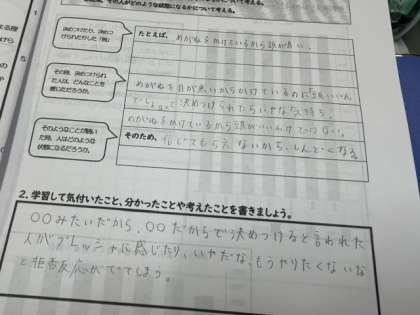 決めつけたり、決めつけられたりした「例」
たとえば、めがねをかけているから頭が良い。
その時、決めつけられた人は、どんなことを感じただろうか。
めがねを目が悪いからかけているのに「頭いいん
でしょ。」って決めつけられたらいやな気持ち。
めがねをかけているから頭がいいわけではない。
そのようなことが続いた時、人はどのような状態になるだろうか。
そのため、信じてもらえないから、しんどくなる
2. 学習して気付いたこと、分かったことや考えたことを書きましょう。
〇〇みたいだから、〇〇だからで決めつけると言われた
人がプレッシャーに感じたり、いやだな、もうやりたくないな
と拒否反応がでてしまう。